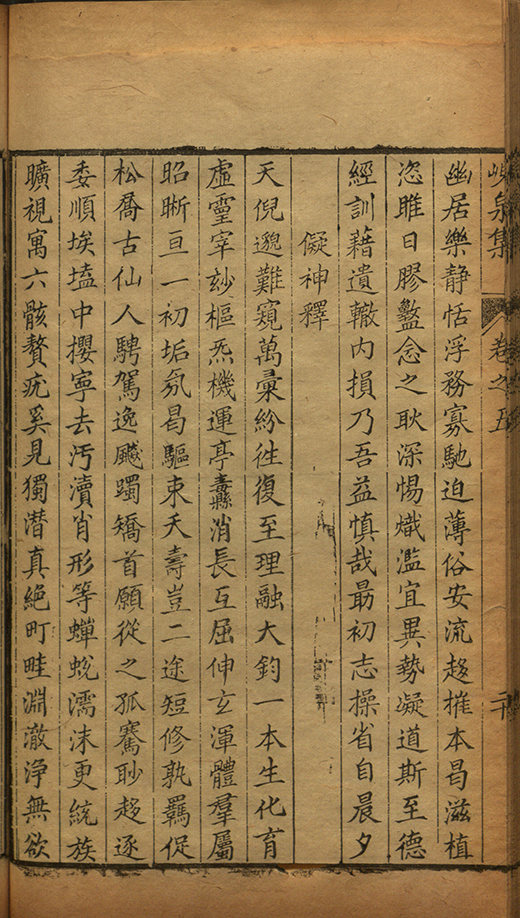 峴泉集 卷之五 二十
幽居樂靜恬浮務寡馳迫薄俗安流趍摧本曷滋植
恣睢日膠盭念之耿深惕熾濫宜異勢凝道斯至德
經訓藉遺轍内損乃吾益慎哉最初志操省自晨夕
儗神釋
天倪邈難窺萬彙紛徃復至理融大鈞一本生化育
虛靈宰玅樞炁機運亭毒縣消長互屈伸玄渾體羣屬
昭晰亘一初垢氛曷驅束夭壽豈二途短修孰羈促
松喬古仙人騁駕逸飇躅矯首願從之孤騫眇趍逐
委順埃壒中攖寧去汚瀆肖形等蟬蛻濡沫更統族
曠視寓六骸贅疣奚見獨潛真絶町畦淵澈浄無欲